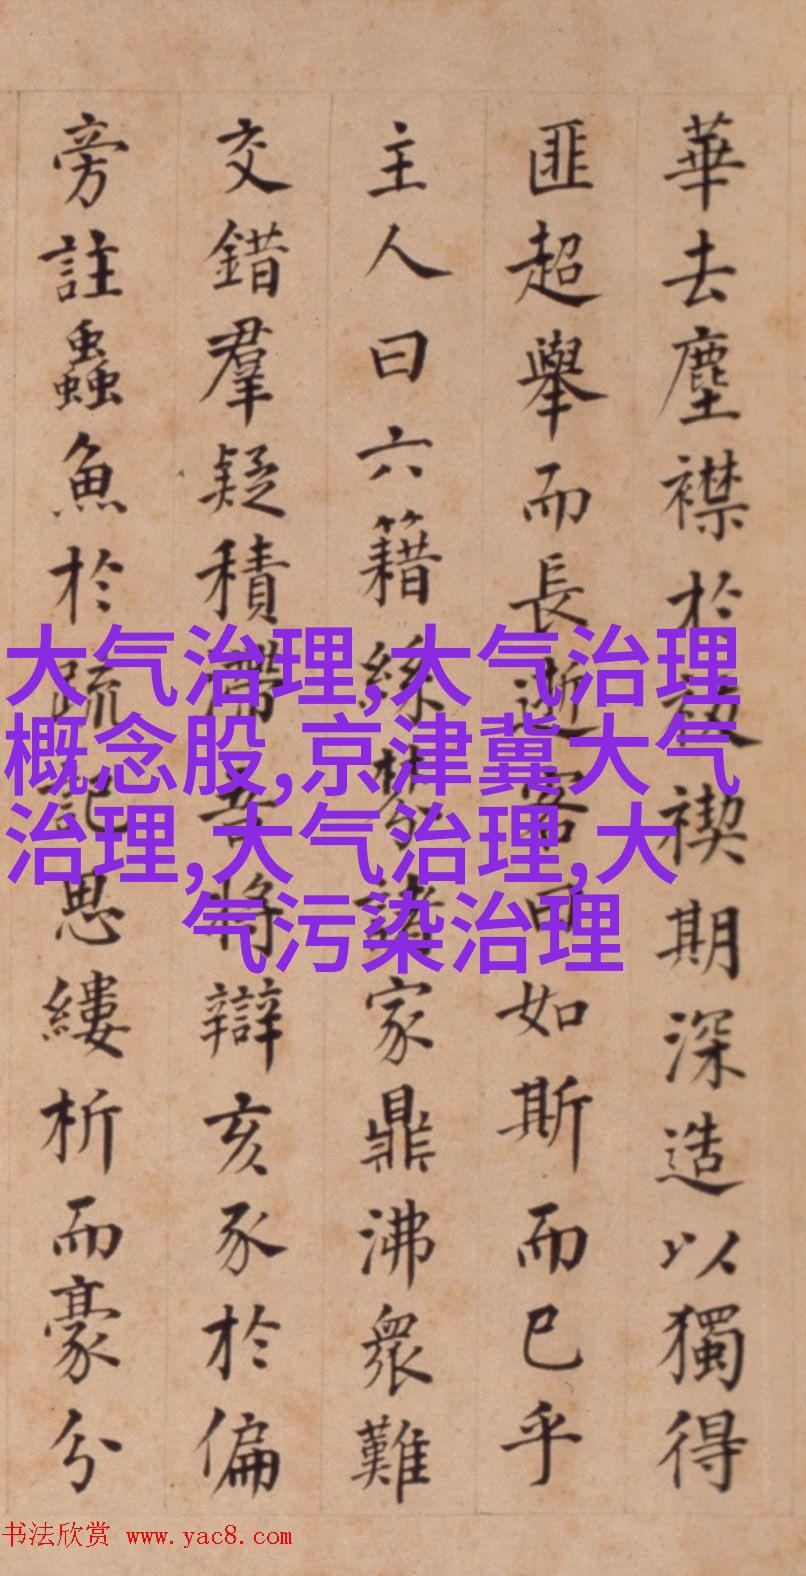 華去塵襟於祓禊期深造以獨得
匪超舉而長逝客曰如斯而已乎
主人曰六籍絲棼諸家鼎沸眾難
交錯羣疑積滯吾將辯亥豕於偏
旁註蟲魚於疏記思縷析而豪分
大气治理,大气治理
概念股,京津冀大气
治理,大气治理,大
气污染治理
书法欣赏 www.yac8.com